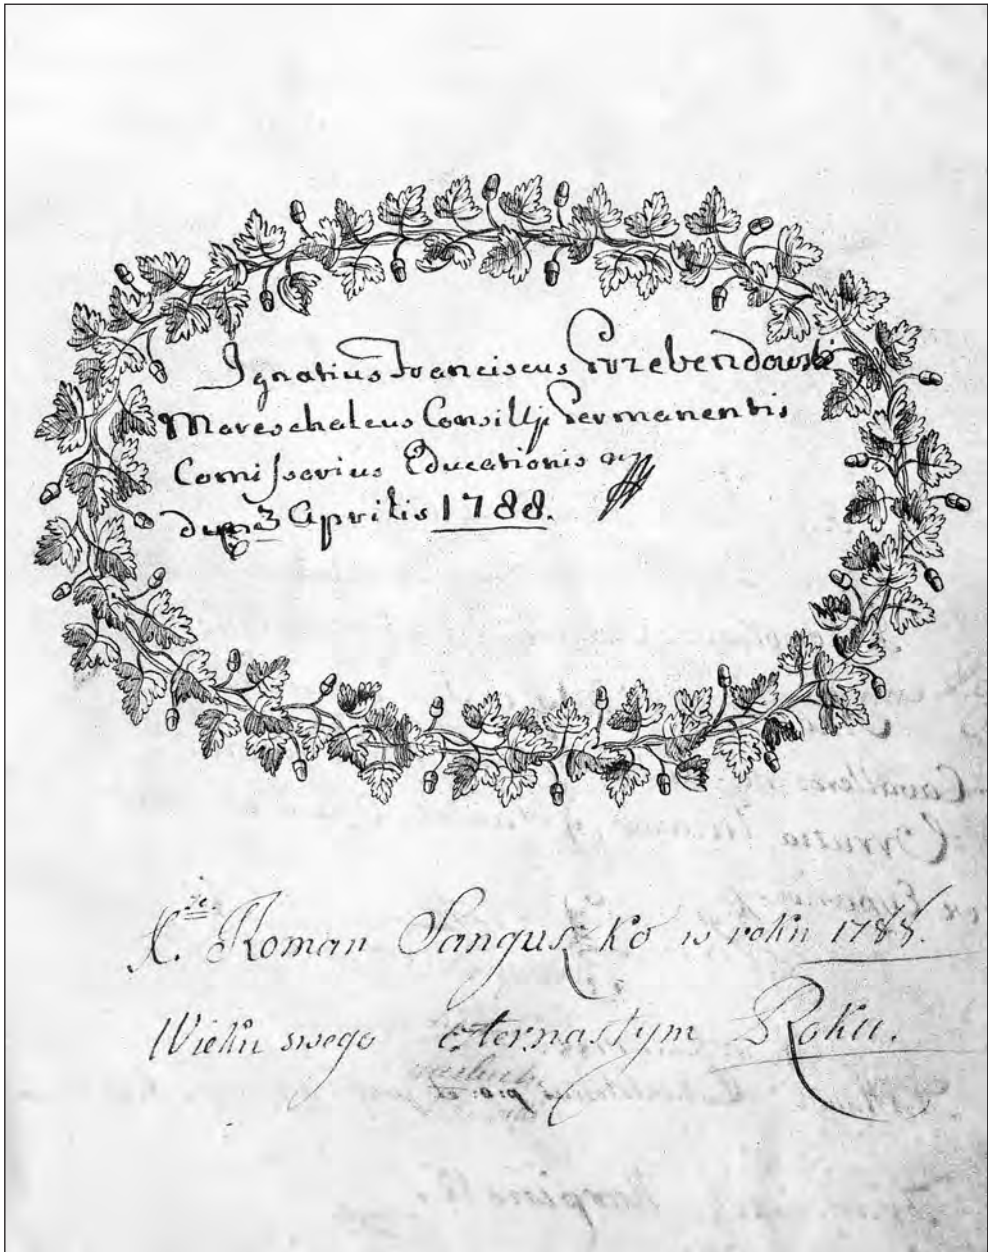 Ignatius Franciscus Przebendowski
Mareschalcus Consilij Permanentis
Comissarius Educationis
Aprilis 1788.
X. Roman Sanguszko w roku 1788.
Wieku swego czternastym Roku.